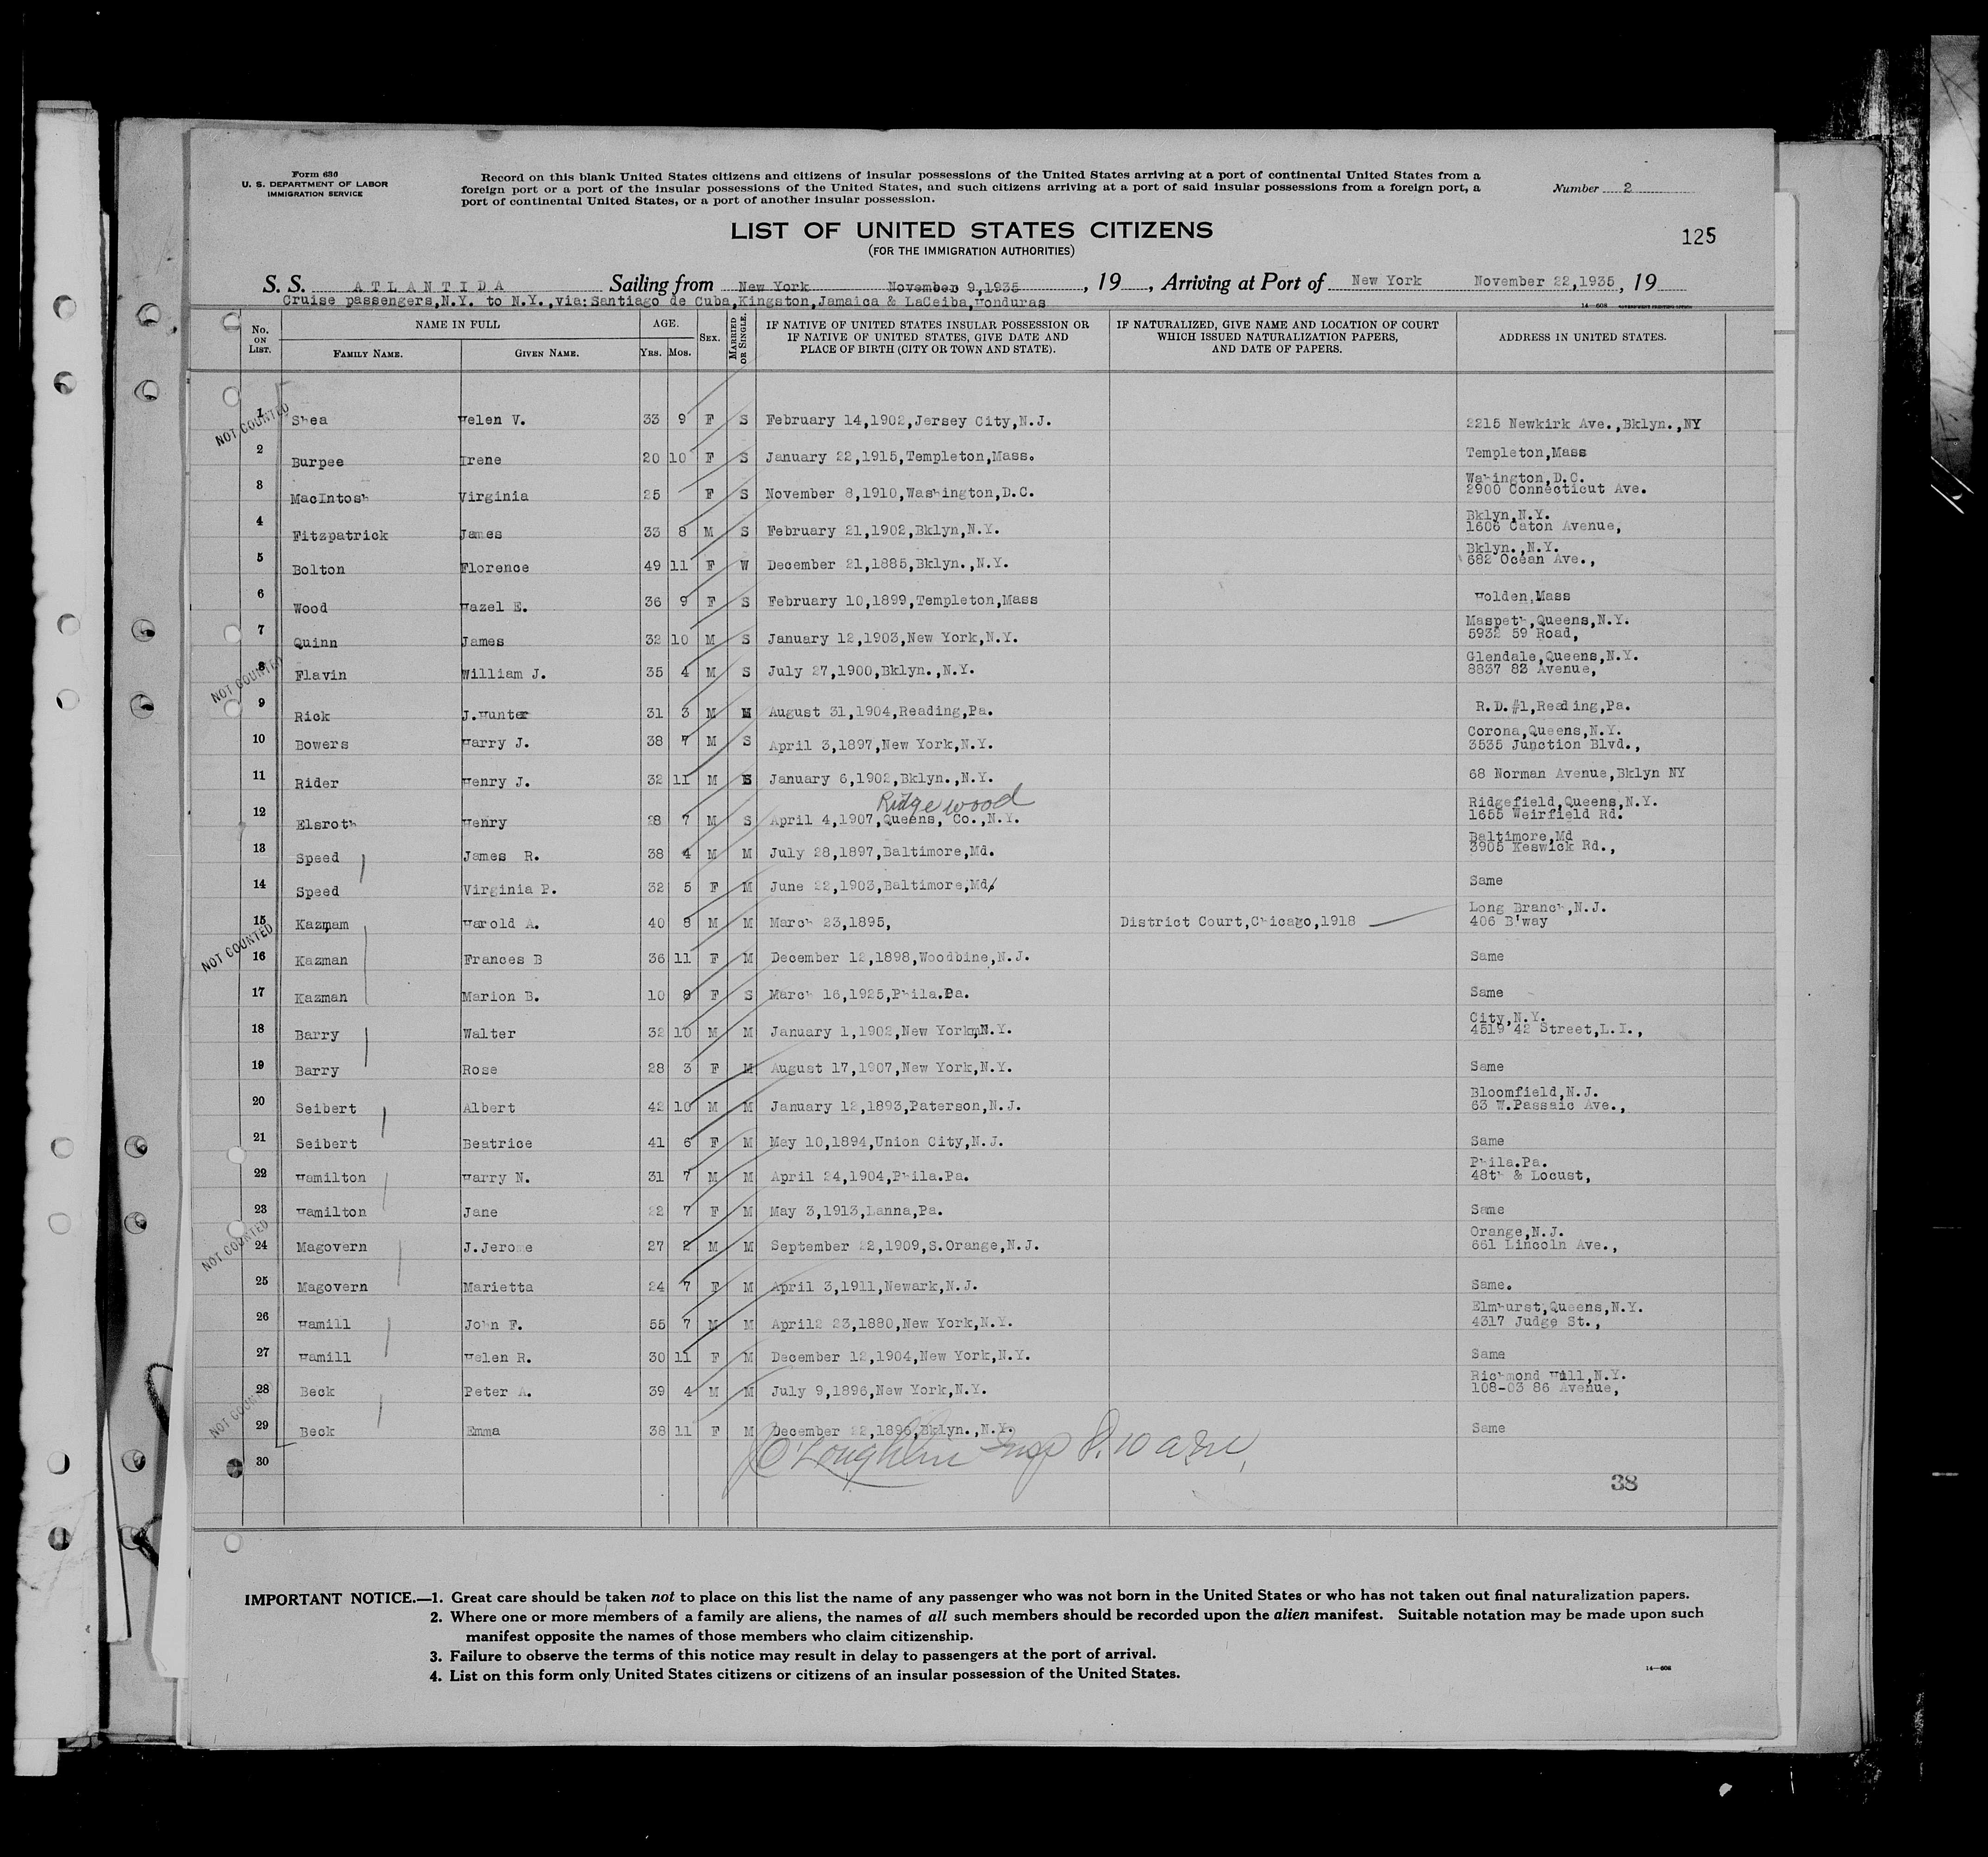 Form 630
U. S. DEPARTMENT OF LABOR
IMMIGRATION SERVICE
Record on this blank United States citizens and citizens of insular possessions of the United States arriving at a port of continental United States from a
foreign port or a port of the insular possessions of the United States, and such citizens arriving at a port of said insular possessions from a foreign port, a
port of continental United States, or a port of another insular possession.
Number 2
LIST OF UNITED STATES CITIZENS
(FOR THE IMMIGRATION AUTHORITIES)
125
S. S. ATLANTIDA Sailing from New York November 9,1935, 19 , Arriving at Port of New York November 22,1935, 19
Cruise passengers,N.Y. to N.Y.,via:Santiago de Cuba,Kingston,Jamaica & LaCeiba,Honduras
14—608
No. ON LIST. NAME IN FULL FAMILY NAME. GIVEN NAME. AGE. YRS. MOS. SEX. MARRIED OR SINGLE. IF NATIVE OF UNITED STATES INSULAR POSSESSION OR IF NATIVE OF UNITED STATES, GIVE DATE AND PLACE OF BIRTH (CITY OR TOWN AND STATE). IF NATURALIZED, GIVE NAME AND LOCATION OF COURT WHICH ISSUED NATURALIZATION PAPERS, AND DATE OF PAPERS. ADDRESS IN UNITED STATES.
NOT COUNTED
1 Shea Helen V. 33 9 F S February 14,1902,Jersey City,N.J. 2215 Newkirk Ave.,Bklyn.,NY
2 Burpee Irene 20 10 F S January 22,1915,Templeton,Mass. Templeton,Mass
3 MacIntosh Virginia 25 F S November 8,1910,Washington,D.C. Wahington,D.C. 2900 Connecticut Ave.
4 Fitzpatrick James 33 8 M S February 21,1902,Bklyn,N.Y. Bklyn,N.Y. 1606 Caton Avenue,
5 Bolton Florence 49 11 F W December 21,1885,Bklyn.,N.Y. Bklyn.,N.Y. 682 Ocean Ave.,
6 Wood Hazel E. 36 9 F S February 10,1899,Templeton,Mass Holden,Mass
7 Quinn James 32 10 M S January 12,1903,New York,N.Y. Maspeth,Queens,N.Y. 5932 59 Road,
NOT COUNTED
8 Flavin William J. 35 4 M S July 27,1900,Bklyn.,N.Y. Glendale,Queens,N.Y. 8837 82 Avenue,
9 Rick J.Hunter 31 3 M M August 31,1904,Reading,Pa. R.D.#1,Reading,Pa.
10 Bowers Harry J. 38 7 M S April 3,1897,New York,N.Y. Corona,Queens,N.Y. 3535 Junction Blvd.,
11 Rider Henry J. 32 11 M S January 6,1902,Bklyn.,N.Y. 68 Norman Avenue,Bklyn NY
Ridgewood
12 Elsroth Henry 28 7 M S April 4,1907,Queens, Co.,N.Y. Ridgefield,Queens,N.Y. 1655 Weirfield Rd.
13 Speed James R. 38 4 M M July 28,1897,Baltimore,Md. Baltimore,Md 3905 Keswick Rd.,
14 Speed Virginia P. 32 5 F M June 22,1903,Baltimore,Md. Same
15 Kazmam Harold A. 40 8 M M March 23,1895, District Court,Chicago,1918 Long Branch,N.J. 406 B'way
NOT COUNTED
16 Kazman Frances B 36 11 F M December 12,1898,Woodbine,N.J. Same
17 Kazman Marion B. 10 8 F S March 16,1925,Phila.Pa. Same
18 Barry Walter 32 10 M M January 1,1902,New YorkmN.Y. City,N.Y. 4519 42 Street,L.I.,
19 Barry Rose 28 3 F M August 17,1907,New York,N.Y. Same
20 Seibert Albert 42 10 M M January 12,1893,Paterson,N.J. Bloomfield,N.J. 63 W.Passaic Ave.,
21 Seibert Beatrice 41 6 F M May 10,1894,Union City,N.J. Same
22 Hamilton Harry N. 31 7 M M April 24,1904,Phila.Pa. Phila.Pa. 48th & Locust,
23 Hamilton Jane 22 7 F M May 3,1913,Lanna,Pa. Same
NOT COUNTED
24 Magovern J.Jerome 27 2 M M September 22,1909,S.Orange,N.J. Orange,N.J. 661 Lincoln Ave.,
25 Magovern Marietta 24 7 F M April 3,1911,Newark,N.J. Same.
26 Hamill John F. 55 7 M M April2 23,1880,New York,N.Y. Elmhurst,Queens,N.Y. 4317 Judge St.,
27 Hamill Helen R. 30 11 F M December 12,1904,New York,N.Y. Same
28 Beck Peter A. 39 4 M M July 9,1896,New York,N.Y. Richmond Hill,N.Y. 108-03 86 Avenue,
NOT COUNTED
29 Beck Emma 38 11 F M December 22,1896,Bklyn.,N.Y. Same
30
O'Loughlin Insp 8.10 am,
38
IMPORTANT NOTICE.—1. Great care should be taken not to place on this list the name of any passenger who was not born in the United States or who has not taken out final naturalization papers.
2. Where one or more members of a family are aliens, the names of all such members should be recorded upon the alien manifest. Suitable notation may be made upon such
manifest opposite the names of those members who claim citizenship.
3. Failure to observe the terms of this notice may result in delay to passengers at the port of arrival.
4. List on this form only United States citizens or citizens of an insular possession of the United States.
14—608